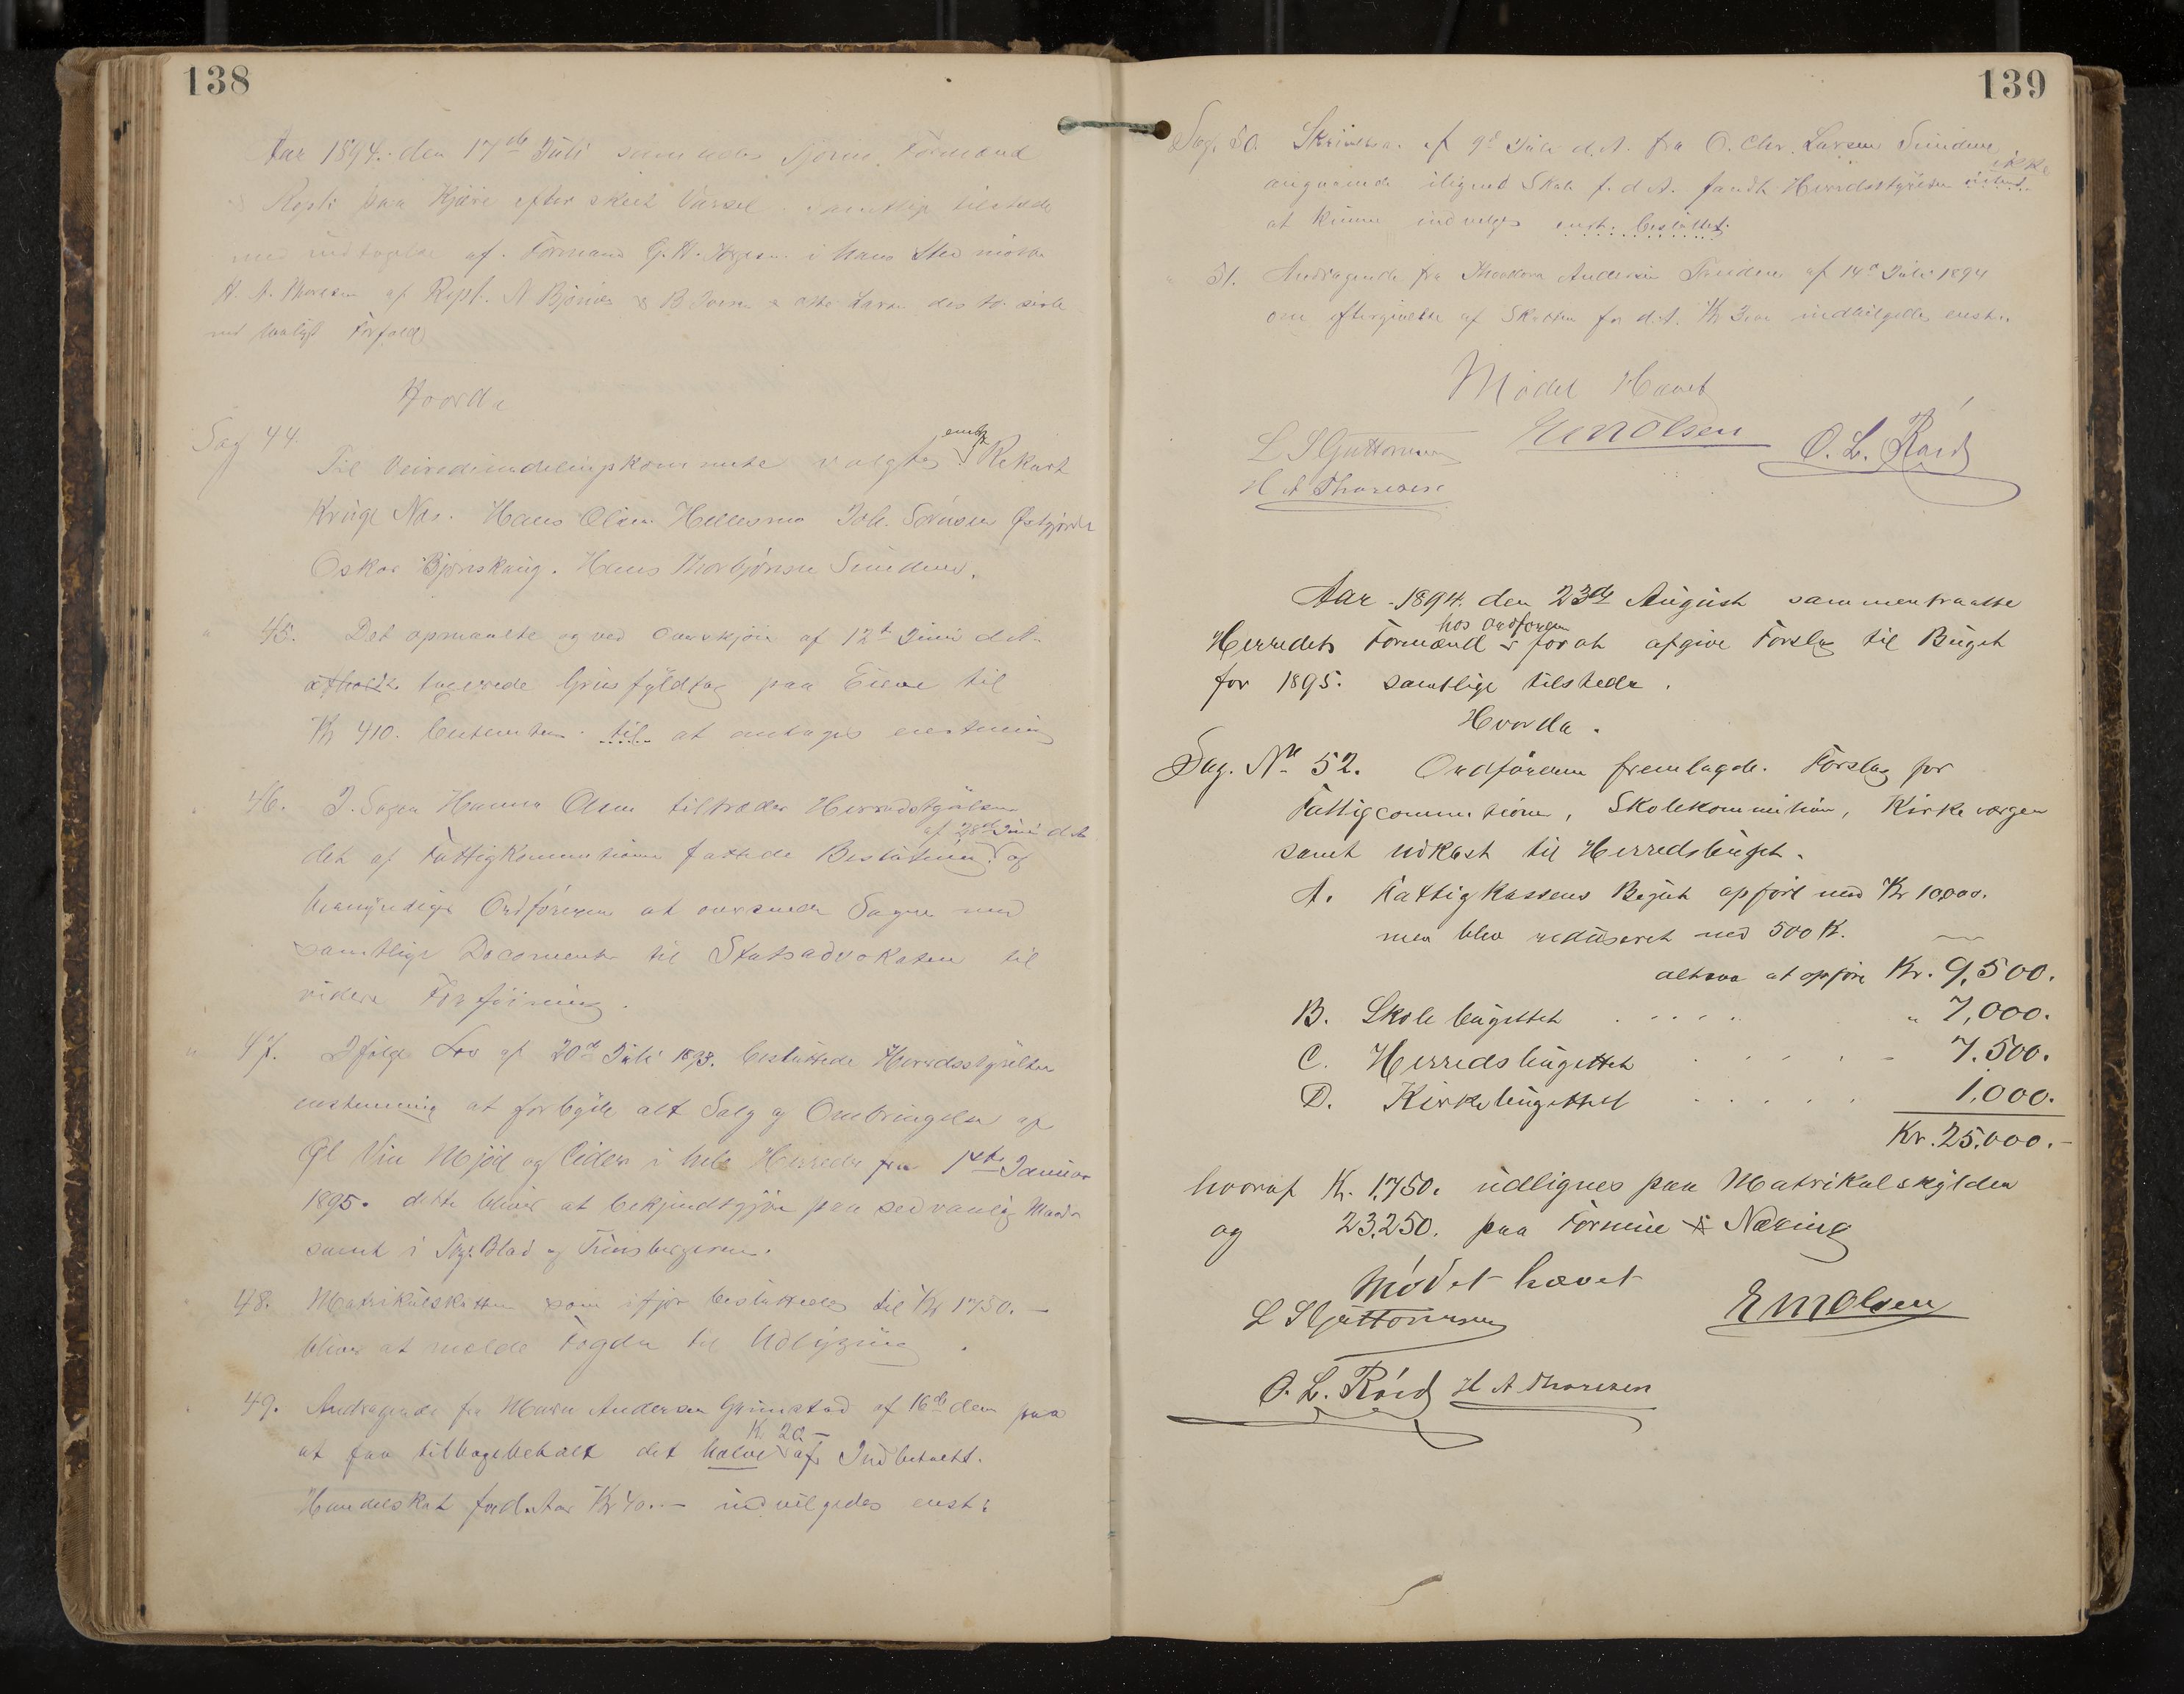 138
Aar 1894. den 17de Juli Tjømø Formænd
& Repst. paa Kjære efter skeet Varsel. samtlige tilstede
med undtagelse af. Formand i hans Sted mødte
H. A. Thoresen af Repst. A Bjønnes & B Iversen &
ved lovligt Forfald
Hvorda
Sag 44.
Til Veiredeindelingskommite valgtes Rekart
Hans Olsen Joh. Sørensen
Oskar Bjørnskaug. Hans Thorbjørnsen Sundene.
" 45. Det opmaalte og ved Overskjøn af 12te Juni d. A.
taxerede Grusfyldtag paa Eiene til
Kr 410. til at antages enstemmig
" 46. I Sagen Hanna Olsen tiltræder Herredsstyrelsen
af 28de Juni d. A.
det af Fattigkommitionen fattede Beslutning og
bemyndiger Ordføreren at oversende Sagen med
samtlige Documenter til Statsadvokaten til
videre Forføining.
" 47. Ifølge Lov af 20de Juli 1893. besluttede Herredsstyrelsen
enstemmig at forbyde alt Salg og Ombringelse af
Øl Vin Mjød og Cider i hele Herredet fra 1ste Januar
1895. dette bliver at bekjendtgjøre paa sedvanlig Maade
samt i Tbg. Blad og Tunsbergeren.
48. Matrikulskatten som ifjor besluttedes til Kr 1750.—
bliver at melde Fogden til Udligning.
49. Andragende fra Maren Andersen Grimestad af 16de dem paa
Kr 20—
at faa tilbagebetalt det halve af Indbetalt.
Handelskat for d. Aar Kr 40.— indvilgedes enst:
139
Sag. 50. Skrivelse. af 9d Juli d. A. fra O. Chr. Larsen Sundene
ikke
angaaende ilignet Skat f. d. A. fandt Herredsstyrelsen
at kunne indvelges enst. besluttet.
" 51. Andragende fra Theodora Andersen af 14d Juli 1894
om eftergivelse af Skatten for d. A. Kr 3,00 indvilgedes enst..
Mødet Hævet
L S Guttormsen EmOlsen O. L. Røed
H A Thoresen
Aar 1894. den 23de August sammentraatte
hos Ordføreren
Herredets Formænd for at afgive Forslag til Buget
for 1895. samtlige tilstede.
Hvorda.
Sag. No 52. Ordføreren fremlagde. Forslag for
Fattigcommitionen, Skolekommitionen, Kirkevergen
samt Udkast til Herredsbuget.
A. Fattigkassens Buget opført med Kr 10,000.
men blev reduseret med 500 K.
altsaa at opføre Kr. 9,500.
B. Skolebugettet . . . . . " 7,000.
C. Herredsbugettet . . . . - 7.500.
D. Kirkebugettet . . . . . 1,000.
Kr. 25.000.-
hvoraf Kr. 1,750. udlignes paa Matrikulskylden
og 23,250. paa Formue & Næring
Mødet hævet
L S Guttormsen EmOlsen
O. L. Røed H A Thoresen